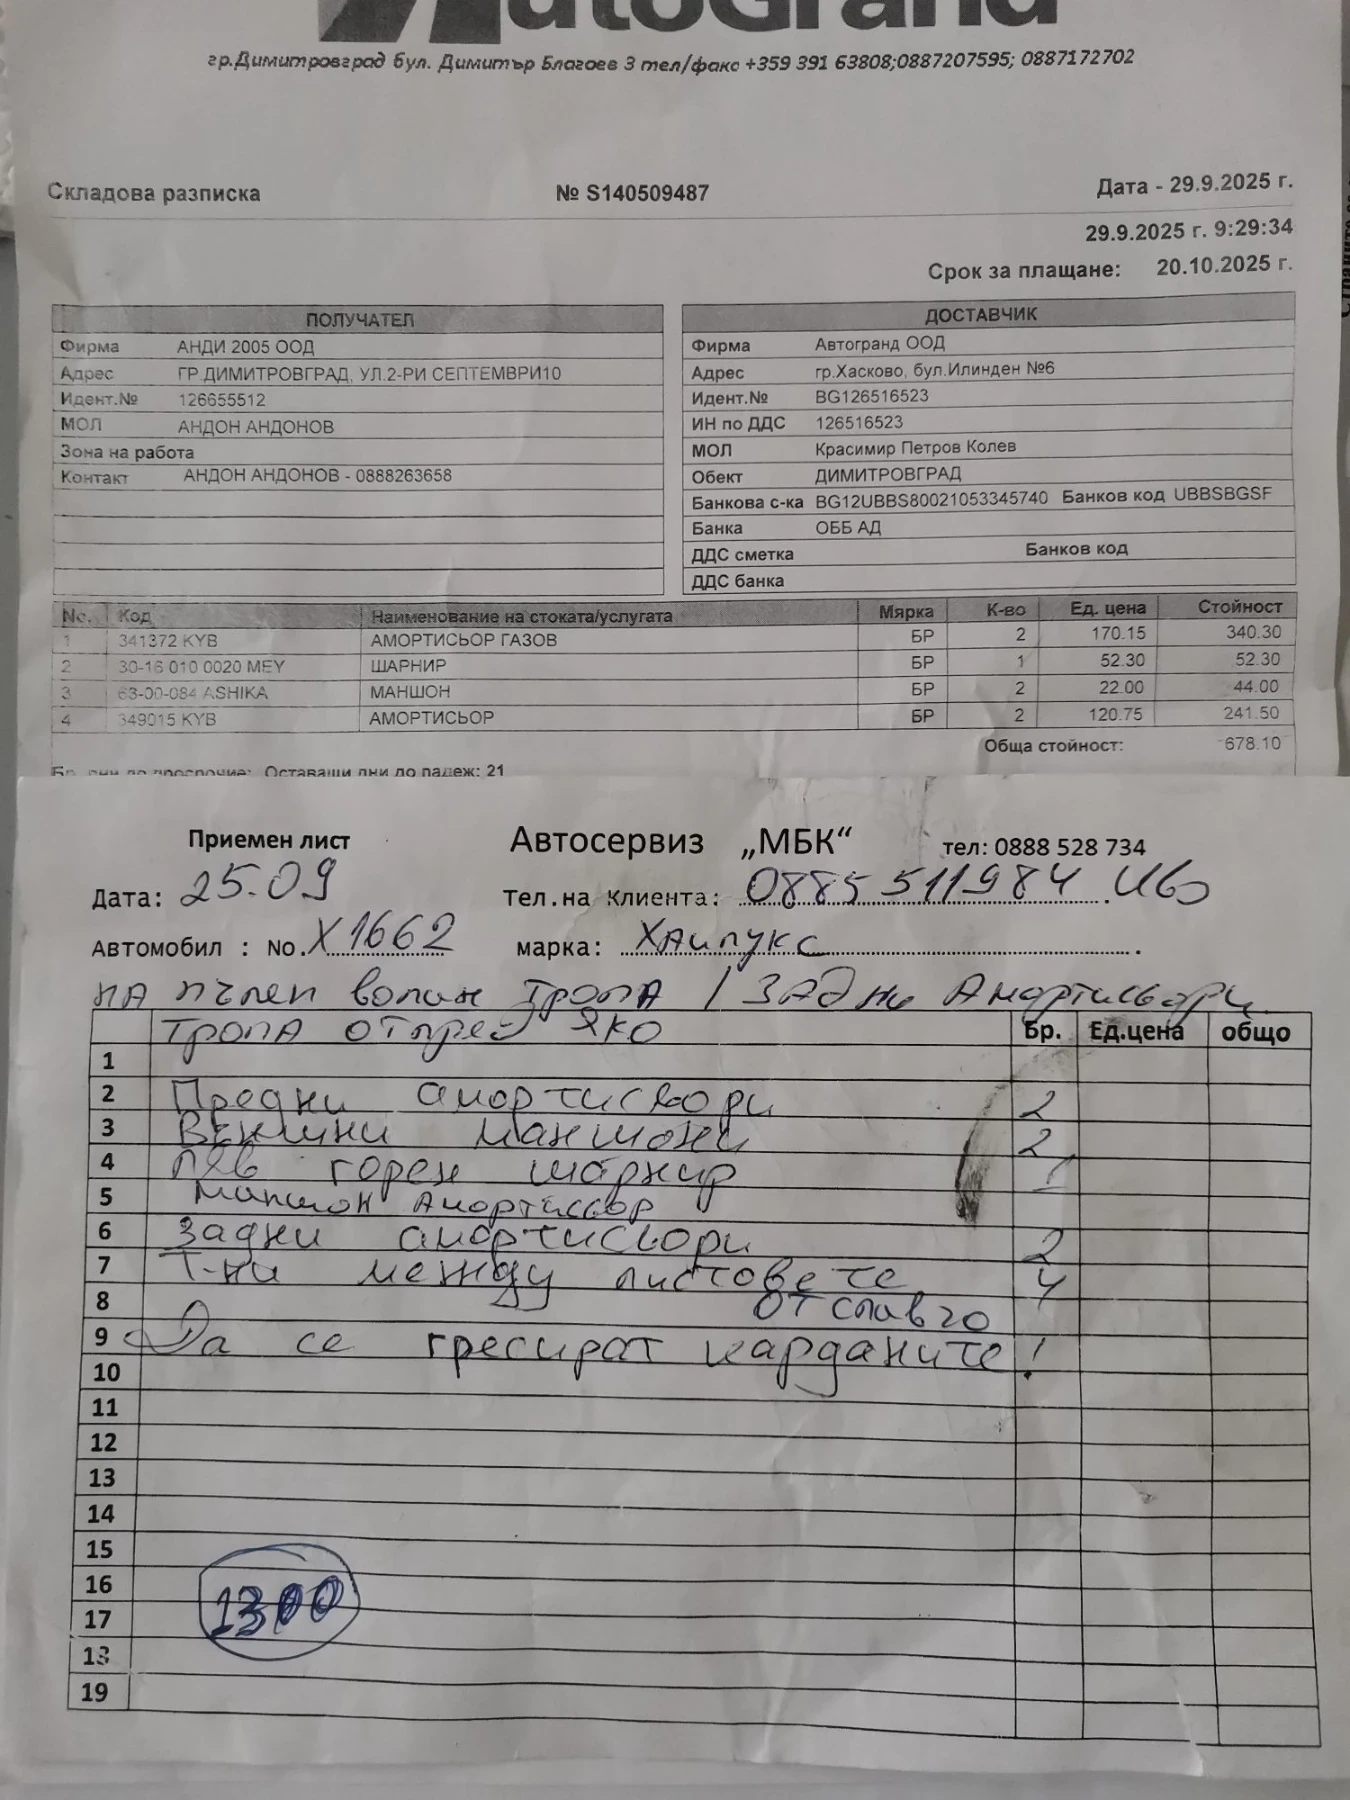 AutoGrand
гр.Димитровград бул. Димитър Благоев 3 тел/факс +359 391 63808;0887207595; 0887172702
Складова разписка № S140509487 Дата - 29.9.2025 г.
29.9.2025 г. 9:29:34
Срок за плащане: 20.10.2025 г.
ПОЛУЧАТЕЛ
Фирма АНДИ 2005 ООД
Адрес ГР.ДИМИТРОВГРАД, УЛ.2-РИ СЕПТЕМВРИ10
Идент.№ 126655512
МОЛ АНДОН АНДОНОВ
Зона на работа
Контакт АНДОН АНДОНОВ - 0888263658
ДОСТАВЧИК
Фирма Автогранд ООД
Адрес гр.Хасково, бул.Илинден №6
Идент.№ BG126516523
ИН по ДДС 126516523
МОЛ Красимир Петров Колев
Обект ДИМИТРОВГРАД
Банкова с-ка BG12UBBS80021053345740 Банков код UBBSBGSF
Банка ОББ АД
ДДС сметка Банков код
ДДС банка
No. Код Наименование на стоката/услугата Мярка К-во Ед. цена Стойност
1 341372 KYB АМОРТИСЬОР ГАЗОВ БР 2 170.15 340.30
2 30-16 010 0020 MEY ШАРНИР БР 1 52.30 52.30
3 63-00-084 ASHIKA МАНШОН БР 2 22.00 44.00
4 349015 KYB АМОРТИСЬОР БР 2 120.75 241.50
Обща стойност: 678.10
Бр. дни до просрочие: Оставащи дни до падеж: 21
Приемен лист Автосервиз „МБК“ тел: 0888 528 734
Дата: 25.09 Тел.на Клиента: 0885 511984 Иво
Автомобил : No. Х1662 марка: Хайлукс
НА пълен волан Тропа / Задни Амортисьори
Тропа отпред Яко Бр. Ед.цена общо
1
2 Предни амортисьори 2
3 Външни маншони 2
4 Ляв горен шарнир 1
5 Маншон Амортисьор
6 Задни амортисьори 2
7 Т-ни между листовете 4
8 от славчо
9 Да се гресират карданите !
10
11
12
13
14
15
16
17 1300
18
19